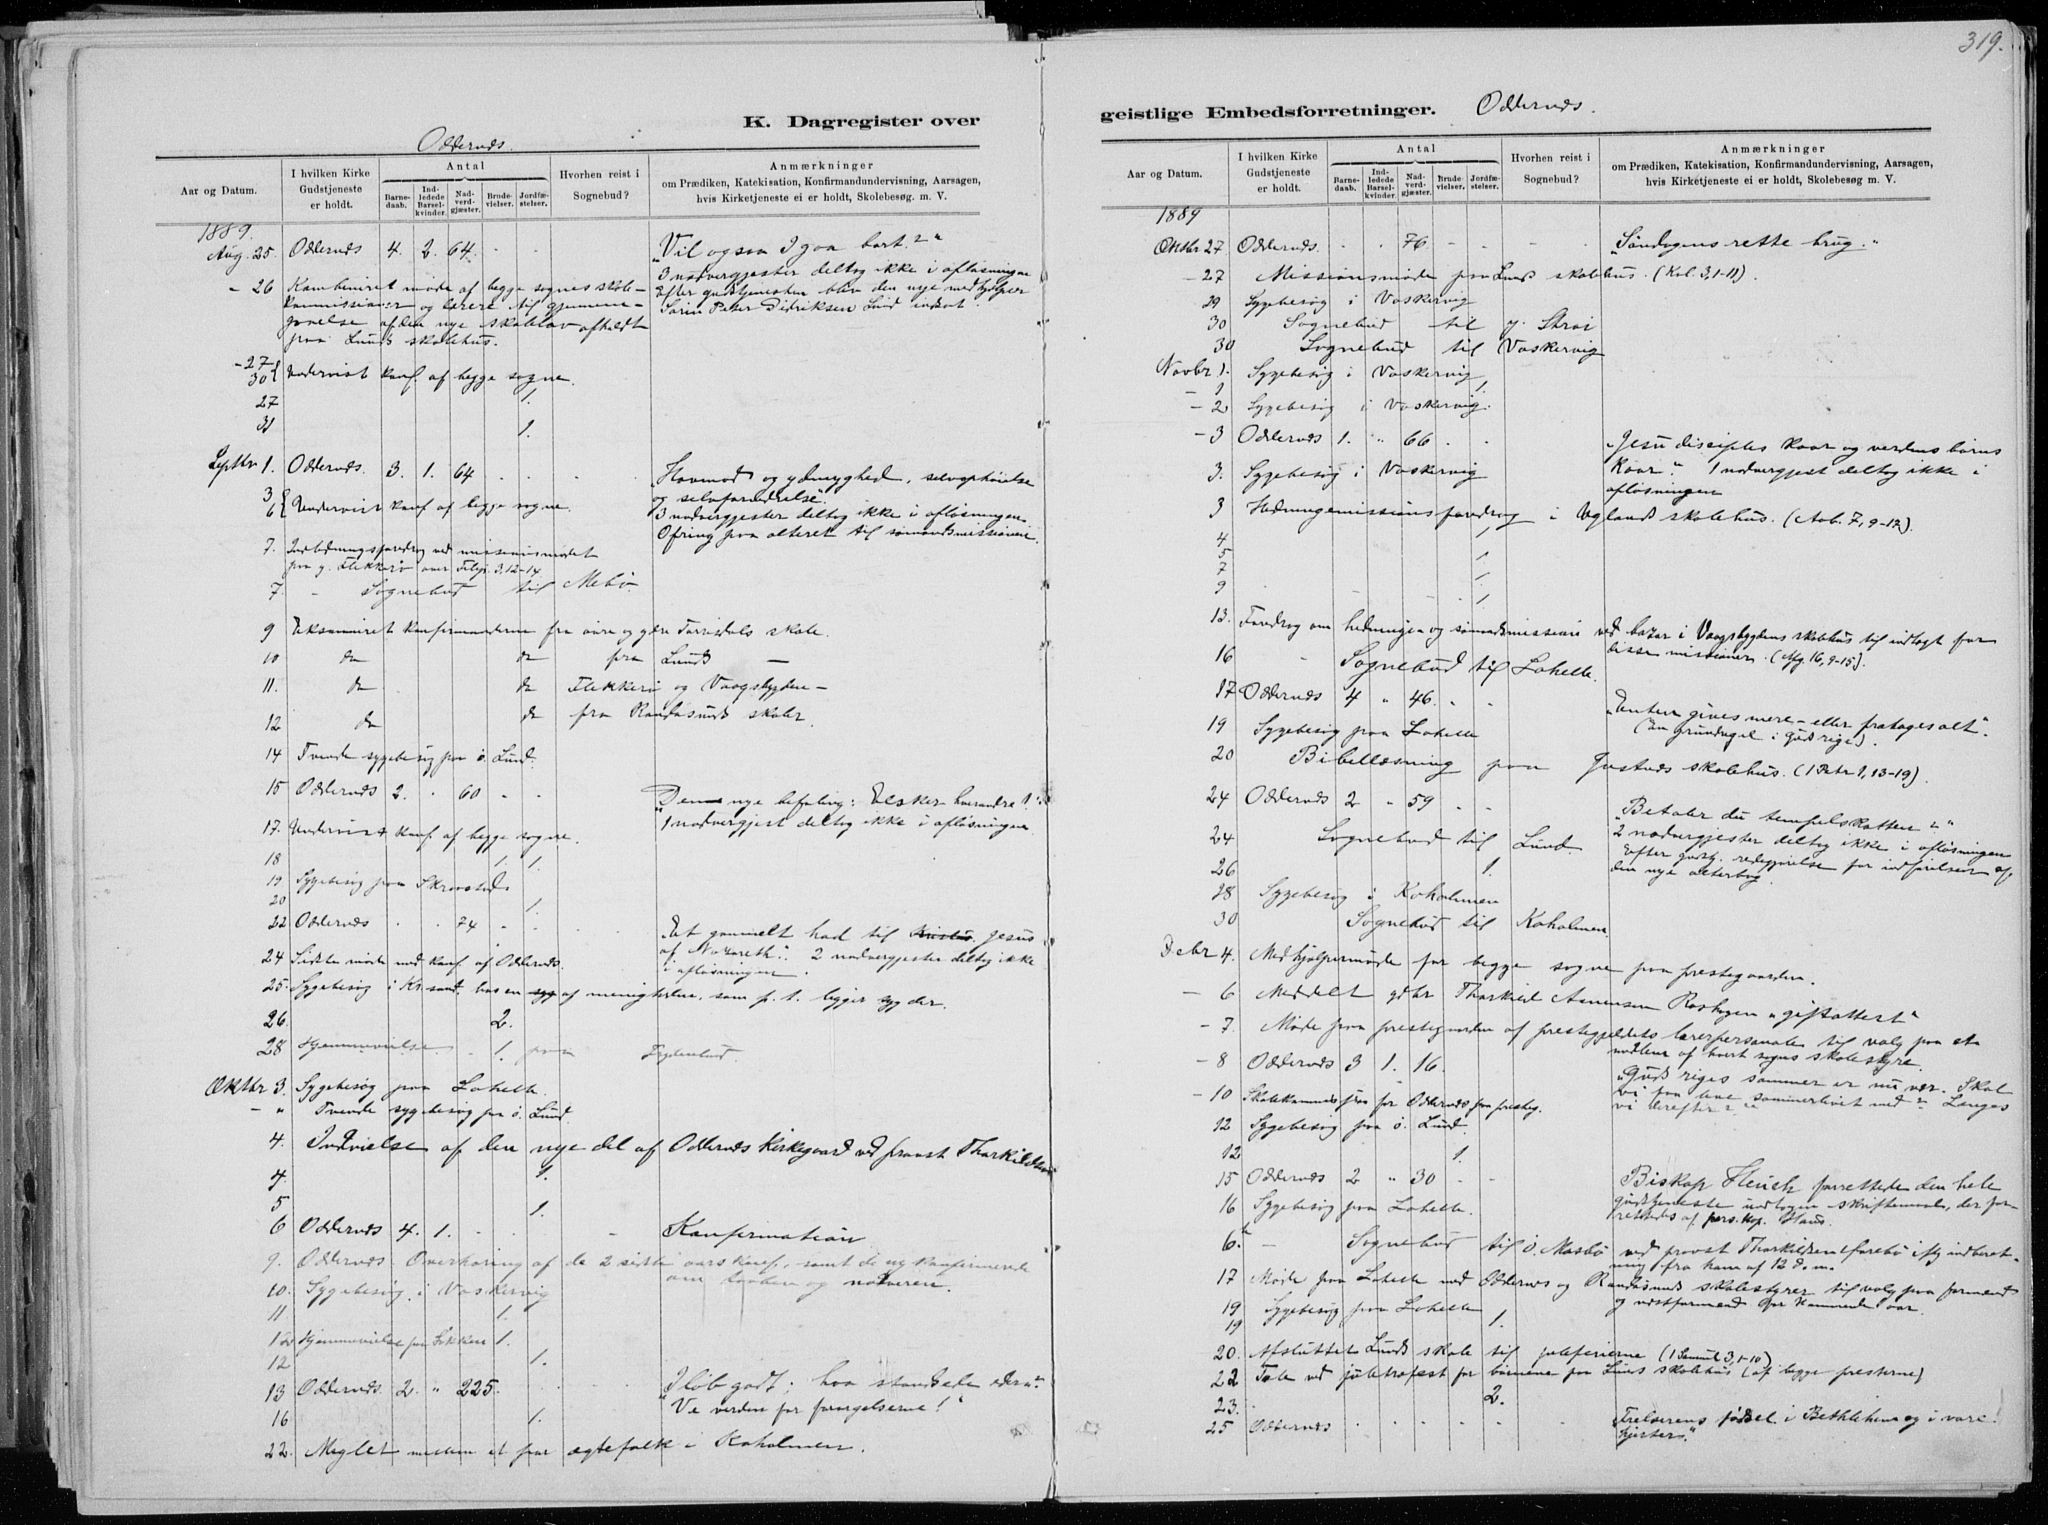 319.
K. Dagregister over
Oddernes.
Aar og Datum.
I hvilken Kirke Gudstjeneste er holdt.
Antal
Barnedaab.
Indledede Barselkvinder.
Nadverdgjæster.
Brudevielser.
Jordfæstelser.
Hvorhen reist i Sognebud?
Anmærkninger
om Prædiken, Katekisation, Konfirmandundervisning, Aarsagen,
hvis Kirketjeneste ei er holdt, Skolebesøg m. V.
1889.
Aug. 25. Oddernes 4. 2. 64. - - "Vil ogsaa I gaa bort?"
3 nadvergjester deltog ikke i afløsningen
Efter gudstjenesten blev den nye medhjælper
Sørin Peter Didriksen Lund indsat.
- 26 Kombineret møde af begge sognes skole-
kommissioner og lærere til gjennem-
gaaelse af den nye skolelov afholdt
paa Lunds skolehus.
- 27 30 Undervist konf. af begge sogne.
27 1.
31 1.
Septbr 1. Oddernes. 3. 1. 64 Hovmod og ydmyghed, selvophøielse
og selvfornedrelse".
3 nadvergjester deltog ikke i afløsningen.
Ofring paa alteret til sømandsmissionen.
3 6 Undervist konf. af begge sogne.
7. Indledningsforedrag ved missionsmødet
paa y. Flekkerø over Filip. 3, 12-14
7. - Sognebud til Mebø.
9 Eksamineret konfirmanderne fra øvre og ydre Torrisdals skole.
10 do do fra Lunds -
11. do do Flekkerø og Vaagsbygdens -
12 do do fra Randøsunds skoler.
14 Tvende sygebesøg paa ø. Lund.
15 Oddernes 2. 60 "Den nye befaling: Elsker hverandre!"
1 nadvergjest deltog ikke i afløsningen.
17. Undervist konf. af begge sogne.
18 1. 1.
19 Sygebesøg paa
20 1.
22 Oddernes 74 "Et gammelt had til Kristus. Jesus
af Nazareth". 2 nadvergjester deltog ikke
i afløsningen.
24 Sidste møde med konf. af Oddernes.
25. Sygebesøg i Kr.sand. hos en syg af menigheden, som p. t. ligger syg der.
26. 2.
28 Hjemmevielse 1. paa
Oktbr 3. Sygebesøg paa Lahelle.
- " Tvende sygebesøg paa ø. Lund.
4. Indvielse af den nye del af Oddernes kirkegaard ved provst Thorkildsen
4. 1.
5 1.
6 Oddernes 4. 1. Konfirmation
9. Oddernes. Overhøring af de 2 sidste aars konf. samt de ny konfirmerede
om daaben og nadveren.
10. Sygebesøg i Voskervig
11 1.
12 Hjemmevielse paa Løkken 1.
12 1.
13 Oddernes 2. " 225. "I løb godt; hvo standsede eder?"
"Ve verden for forargelserne!"
16 1.
22. Meglet mellem et par ægtefolk i Kaholmen.
geistlige Embedsforretninger. Oddernes.
Aar og Datum.
I hvilken Kirke Gudstjeneste er holdt.
Antal
Barnedaab.
Indledede Barselkvinder.
Nadverdgjæster.
Brudevielser.
Jordfæstelser.
Hvorhen reist i Sognebud?
Anmærkninger
om Prædiken, Katekisation, Konfirmandundervisning, Aarsagen,
hvis Kirketjeneste ei er holdt, Skolebesøg m. V.
1889
Oktbr 27 Oddernes. 76 "Søndagens rette brug."
- 27 Missionsmøde paa Lunds skolehus. (Kol. 3, 1-11).
29 Sygebesøg i Voskervig
30 Sognebud til y. Strai
30 Sognebud til Voskervig
Novbr 1. Sygebesøg i Voskervig
- 1 1.
- 2 Sygebesøg i Voskervig.
- 3 Oddernes 1. " 66 "Jesu disciples kaar og verdens børns
kaar". 1 nadvergjest deltog ikke i
afløsningen
3. Sygebesøg i Voskervig
3 Hedningemissionsforedrag i Uglands skolehus. (Aab. 7, 9-12).
4 1
5 1
7 1.
9 1
13. Foredrag om hedninge og sømandsmission ved bazar i Vaagsbygdens skolehus til indtægt for
disse missioner. (Mg. 16, 9-15).
16 - Sognebud til Lahelle.
17 Oddernes 4 " 46. "Enten gives mere - eller fratages alt".
(En grundregel i Guds rige).
19 Sygebesøg paa Lahelle
20 Bibellæsning paa Justnes skolehus. (1 Petr. 1, 13-19).
24 Oddernes 2 " 59 "Betaler du tempelskatten?"
2 nadvergjester deltog ikke i afløsningen
Efter gudstj. redegjørelse for indførelsen af
den nye alterbog.
24 Sognebud til Lund.
26 1.
28 Sygebesøg i Kaholmen
30 Sognebud til Kaholmen.
Decbr 4. Medhjælpermøde for begge sogne paa prestegaarden.
- 6 Meddelt gdbr Thorkild Asmunsen "giftattest"
- 7. Møde paa prestegaarden af prestegjeldets lærerpersonale til valg paa et
medlem af hvert sogns skolestyre.
- 8 Oddernes 3 1. 16. "Guds riges sommer er nu nær. Skal
vi faa leve sommerlivet med? Længes
vi derefter?"
- 10 Skolekommission for Oddernes paa presteg.
12 Sygebesøg paa ø. Lund.
12 1.
15 Oddernes 2 " 30 Biskop Heuch forrettede den hele
gudstjeneste undtagen skriftemaalet, der for-
rettedes af pers. kap. Hans.
16 Sygebesøg paa Lahelle.
6. - Sognebud til ø. Mosbø ved provst Thorkildsen ifølge indberet-
ning fra ham af 12 d. m.
17 Møde paa Lahelle med Oddernes og Randøsunds skolestyrer til valg paa formænd
og næstformænd for kommende aar.
19 Sygebesøg paa Lahelle
19 1.
20. Afsluttet Lunds skole til juleferierne (1 Samuel 3, 1-10)
22 Tale ved juletræfest for børnene paa Lunds skolehus (af begge presterne)
23. 2.
25 Oddernes "Frelserens fødsel i Bethlehem og i vore
hjerter."